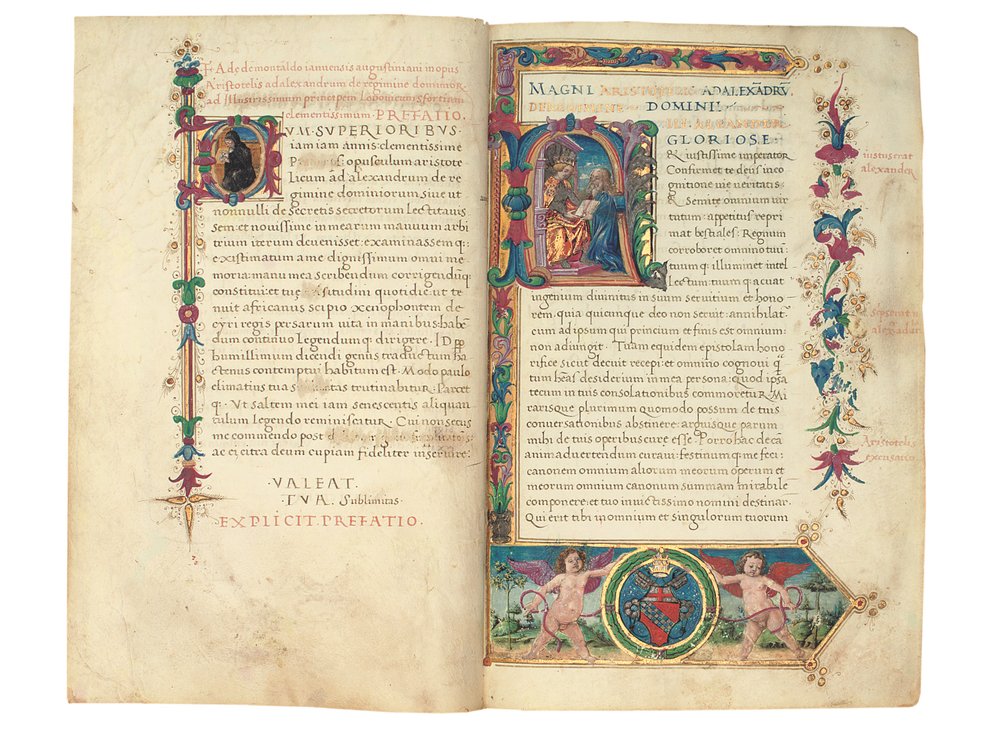 F. A de demontaldo ianuensis augustiniani in opus
Aristotelis ad alexandrum de regimine dominiorum
ad Illustrissimum principem Lodovicum sfortiam
clementissimum. PREFATIO.
UM. SUPERIORIBUS.
iam iam annis: clementissime
opusculum aristote
licum ad alexandrum de re
gimine dominiorum: siue ut
nonnulli de secretis secretorum Lectitauis
sem: et nouissime in mearum manuum arbi
trium iterum deuenisset: examinassem q;:
existimatum a me dignissimum omni me
moria: manu mea scribendum corrigendūq;
constitui: et tuę quotidie: ut te
nuit africanus scipio xenophontem de
cyri regis persarum uita in manibus: habē
dum continuo Legendum q; dirigere. ID
humillimum dicendi genus traductum ha
ctenus contemptui habitum est. Modo paulo
elimatius tua trutinabitur. Parcet
q;. Ut saltem mei iam senescentis aliquan
tulum legendo reminiscitur. Cui non secus
me commendo post
ac ei citra deum cupiam fideliter inseruire:
.VALEAT.
.TUA. Sublimitas.
.EXPLICIT. PREFATIO.
MAGNI ARISTOTELIS AD ALEXĀDRŪ.
DOMINI:
GLORIOSE:
& iustissime imperator
Confirmet te deus in co
gnitione uie ueritatis
& Semite omnium uir
tutum: appetitus repri
mat bestiales: Regnum
corroboret omnino tuū:
tuum q; illuminet intel
Lectum. tuum q; acuat
ingenium diuinitus in suum seruitium et hono
rem. quia quicumque deo non seruit: annibilat
eum ad ipsum qui principium et finis est omnium:
non adiungit. Tuam equidem epistolam hono
rifice sicut decuit recepi: et omnino cognoui q̄
tum hēas desiderium in mea persona: quod ipsa
tecum in tuis consolationibus commoretur. Mi
rarisque plurimum quomodo possum de tuis
conuersationibus abstinere: argusque parum
mihi de tuis operibus cure esse. Porro hac de cā
animaduertendum curaui: festinum q; me feci:
canonem omnium aliorum meorum operum et
meorum omnium canonum summam mirabile
componere: et tuo inuictissimo nomini destinar
Qui erit tibi in omnium et singulorum tuorum
iustus erat
alexander
alexāder
Aristotelis
excusatio